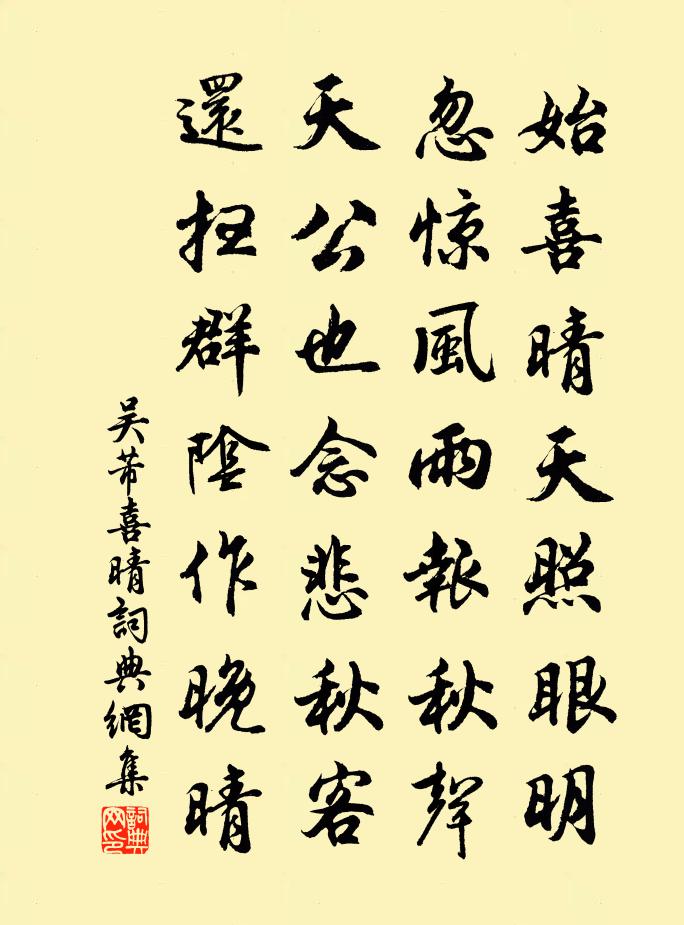 始喜晴天照眼明
忽惊風雨報秋聲
天公也念悲秋客
還扫群陰作晚晴
吴芾喜晴詞典網集
詞典网印